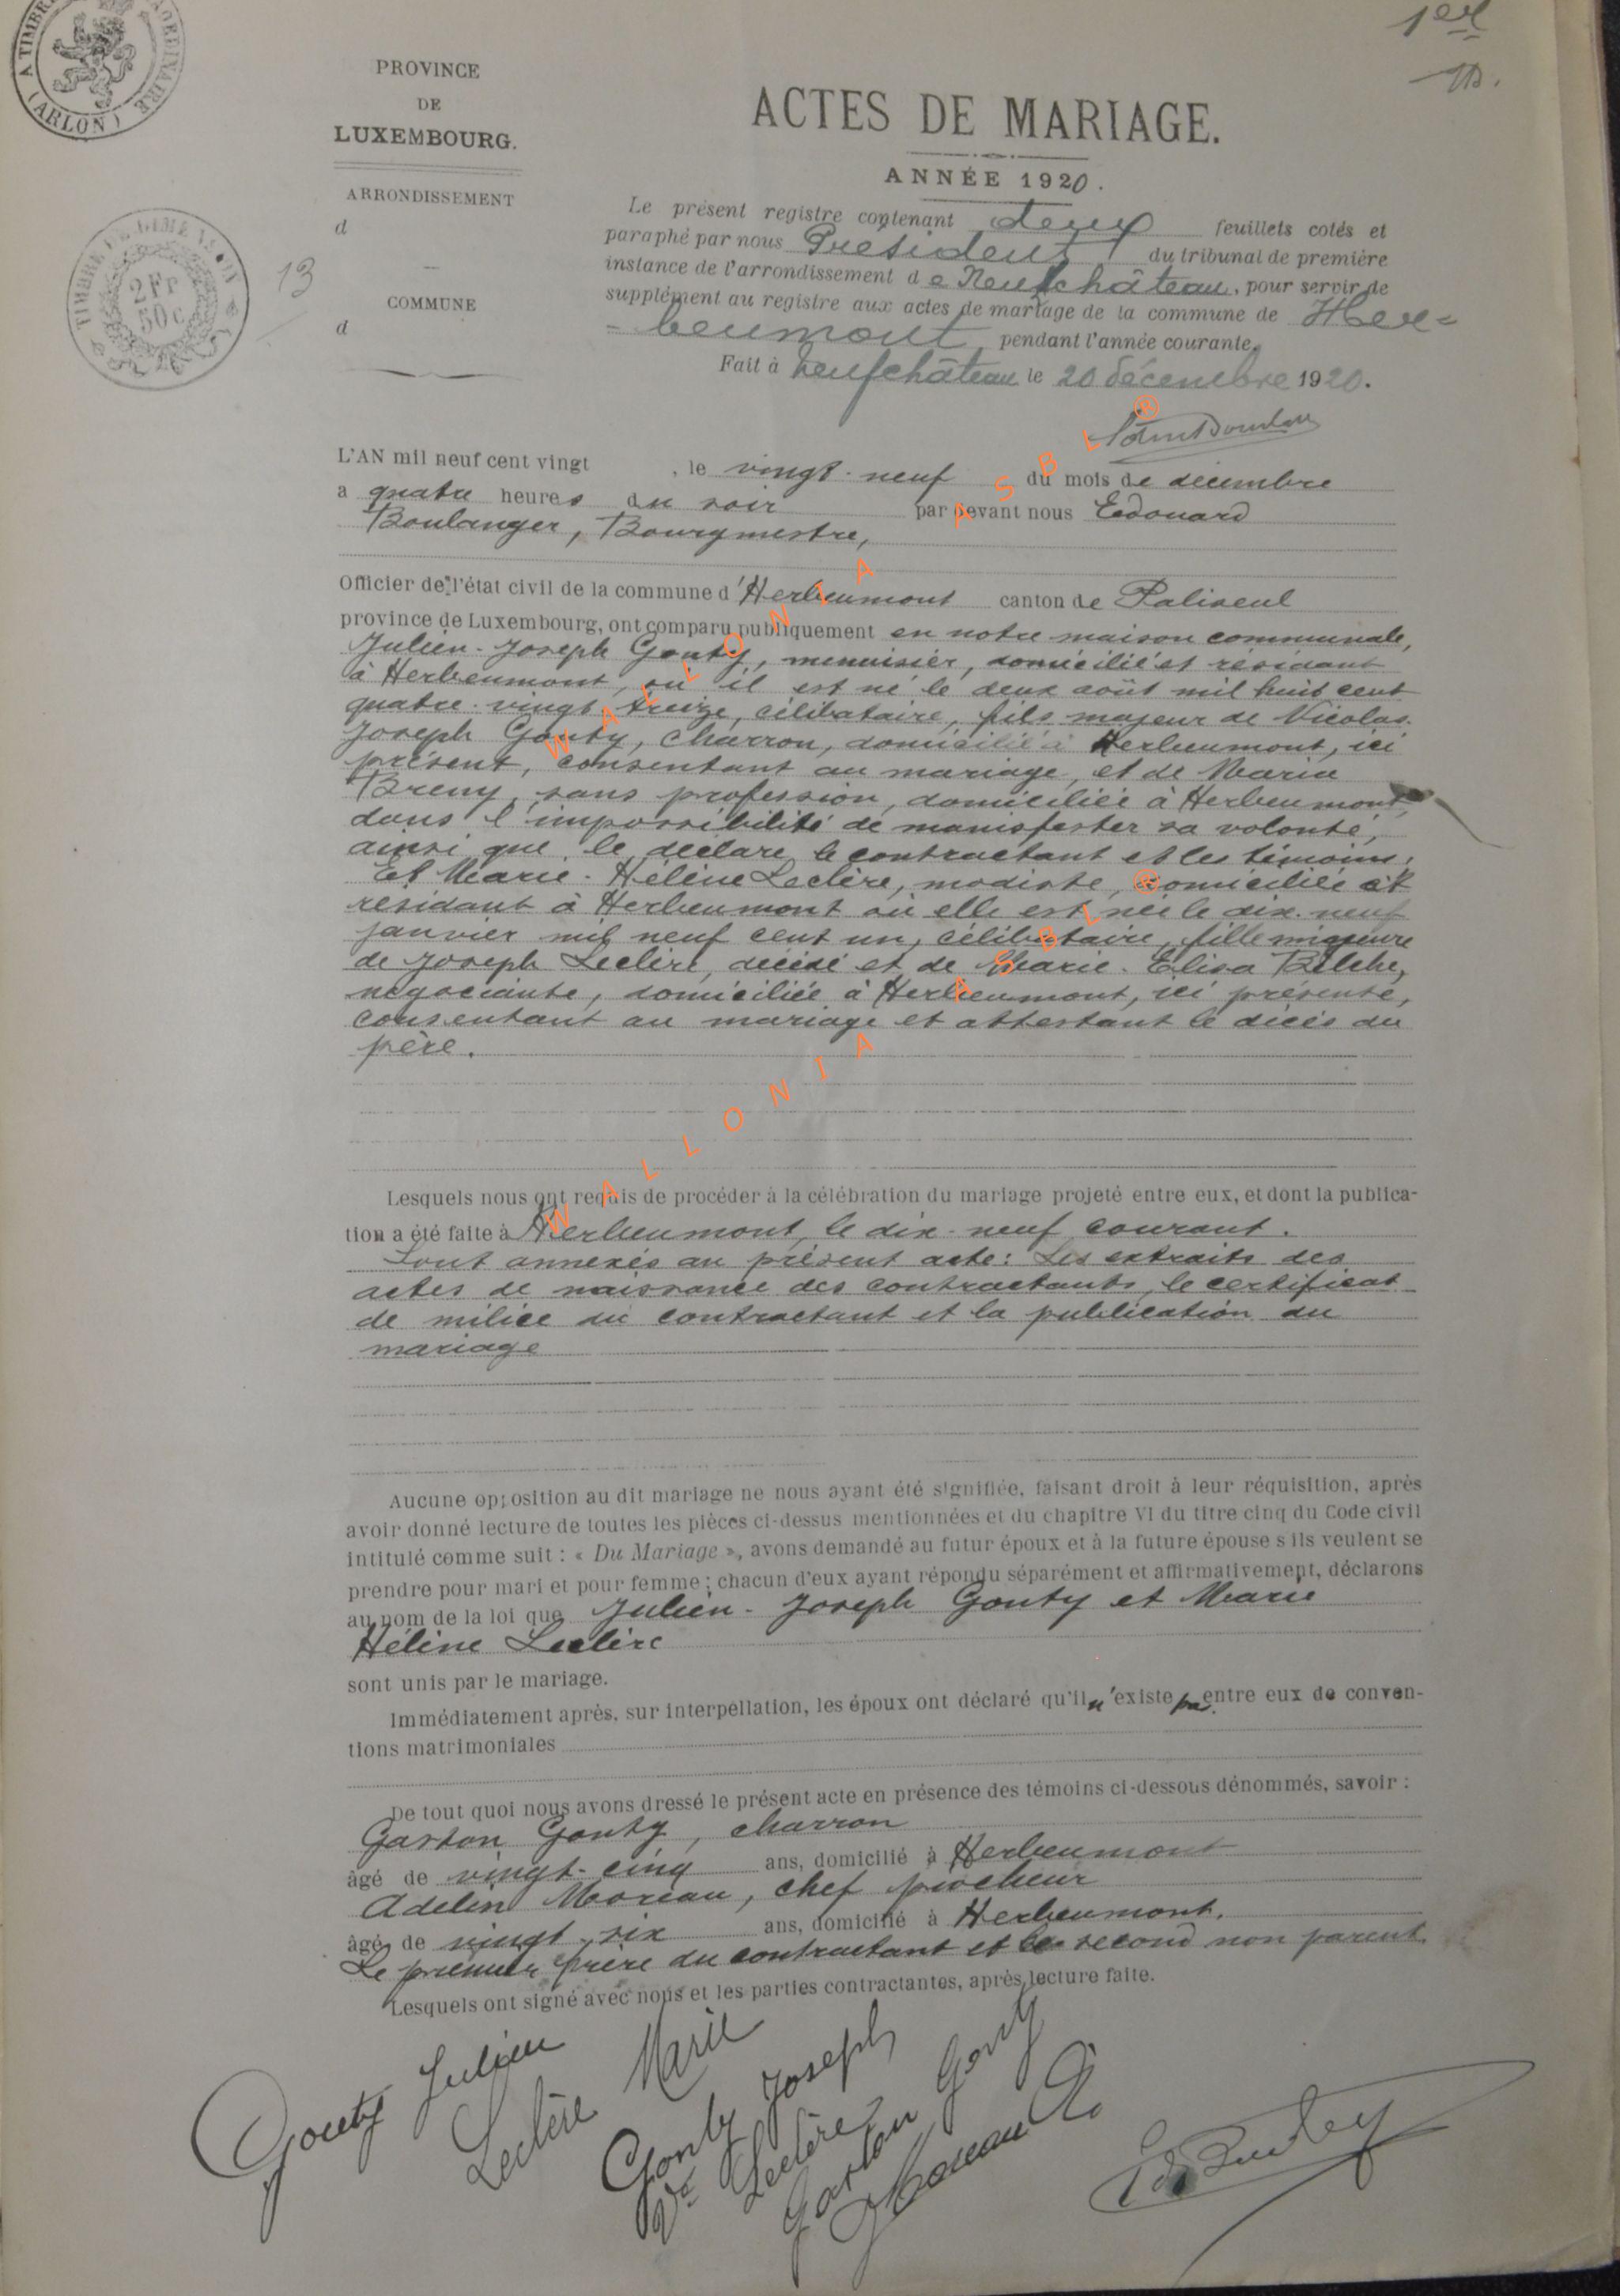 1er
A TIMBRE
(ARLON)
PROVINCE
DE
LUXEMBOURG.
ARRONDISSEMENT
d
COMMUNE
d
TIMBRE DE DIMENSION
2 Fr
50 c
13
ACTES DE MARIAGE.
ANNÉE 1920.
Le présent registre contenant deux feuillets cotés et
paraphé par nous Président du tribunal de première
instance de l'arrondissement de Neufchâteau, pour servir de
supplément au registre aux actes de mariage de la commune de Her=
-beumont, pendant l'année courante.
Fait à Neufchâteau le 20 décembre 1920.
L'AN mil neuf cent vingt, le vingt-neuf du mois de décembre
a quatre heures du soir par devant nous Edouard
Boulanger, Bourgmestre,
Officier de l'état civil de la commune d'Herbeumont canton de Paliseul
province de Luxembourg, ont comparu publiquement en notre maison communale,
Julien-Joseph Gouty, menuisier, domicilié et résidant
à Herbeumont, où il est né le deux août mil huit cent
quatre-vingt treize, célibataire, fils majeur de Nicolas-
Joseph Gouty, charron, domicilié à Herbeumont, ici
présent, consentant au mariage, et de Maria
Breny, sans profession, domiciliée à Herbeumont,
dans l'impossibilité de manisfester sa volonté,
ainsi que le déclare le contractant et les témoins.
Et Marie-Hélène Leclère, modiste, domiciliée et
résidant à Herbeumont où elle est née le dix-neuf
janvier mil neuf cent un, célibataire, fille mineure
de Joseph Leclère, décédé et de Marie-Elisa Bilche,
négociante, domiciliée à Herbeumont, ici présente,
consentant au mariage et attestant le décès du
père.
Lesquels nous ont requis de procéder à la célébration du mariage projeté entre eux, et dont la publica-
tion a été faite à Herbeumont, le dix-neuf courant.
Sont annexés au présent acte: Les extraits des
actes de naissance des contractants, le certificat
de milice du contractant et la publication du
mariage
Aucune opposition au dit mariage ne nous ayant été signifiée, faisant droit à leur réquisition, après
avoir donné lecture de toutes les pièces ci-dessus mentionnées et du chapitre VI du titre cinq du Code civil
intitulé comme suit : « Du Mariage », avons demandé au futur époux et à la future épouse s ils veulent se
prendre pour mari et pour femme ; chacun d'eux ayant répondu séparément et affirmativement, déclarons
au nom de la loi que Julien-Joseph Gouty et Marie
Hélène Leclère
sont unis par le mariage.
Immédiatement après, sur interpellation, les époux ont déclaré qu'il n'existe pas entre eux de conven-
tions matrimoniales
De tout quoi nous avons dressé le présent acte en présence des témoins ci-dessous dénommés, savoir :
Gaston Gouty, charron
âgé de vingt-cinq ans, domicilié à Herbeumont
Adelin Moreau, chef piocheur
âgé de vingt-six ans, domicilié à Herbeumont.
Le premier frère du contractant et le second non parent.
Lesquels ont signé avec nous et les parties contractantes, après lecture faite.
Gouty Julien
Leclère Marie
Gouty Joseph
Ve Leclère
Gaston Gouty
Moreau A.
WALLONIA ASBL ®
WALLONIA ASBL ®